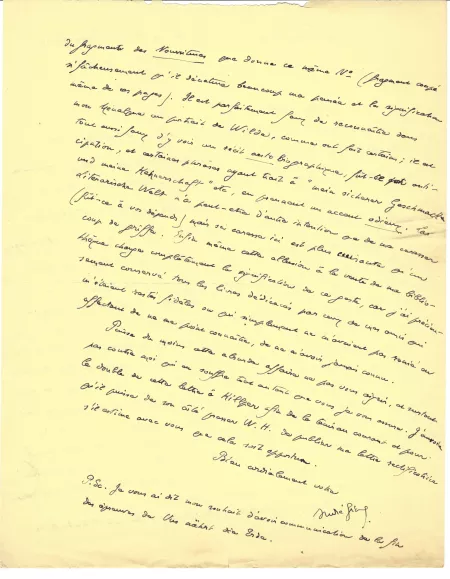 du fragment des Nourritures que donne ce même N° (fragment coupé
si fâcheusement qu'il dénature beaucoup ma pensée et la signification
même de ces pages). Il est parfaitement faux de reconnaître dans
mon Ménalque un portrait de Wilde, comme ont fait certains; il est
tout aussi faux d'y voir un récit autobiographique, fût-il par anti-
cipation, et certaines phrases ayant trait à "mein sicherer Geschmack
und meine Kennerschaft" etc, en prenant un accent odieux. La
Literarische Welt n'a peut-être d'autre intention que de me caresser
(fût-ce à vos dépends) mais sa caresse ici est plus qu'un
coup de griffe. Enfin même cette allusion à la vente de ma biblio-
thèque change complètement la signification de ce geste, car j'ai précieu-
sement conservé tous les livres dédicacés par ceux de mes amis qui
m'étaient restés fidèles ou qui simplement ne m'avaient pas renié en
affectant de ne me point connaître, de ne m'avoir jamais connu.
Puisse du moins cette absurde affaire ne pas vous aigrir, et surtout
pas contre moi qui en souffre tout autant que vous, je vous assure. J'envoie
le double de cette lettre à Hillgers afin de le tenir au courant et pour
qu'il puisse de son côté presser W. H. de publier ma lettre rectificative
s'il estime avec vous que cela soit opportun.
Bien cordialement votre
André Gide.
P.Sc. Je vous ai dit mon souhait d'avoir communication de la fin
des épreuves de Uns nährt die Erde.